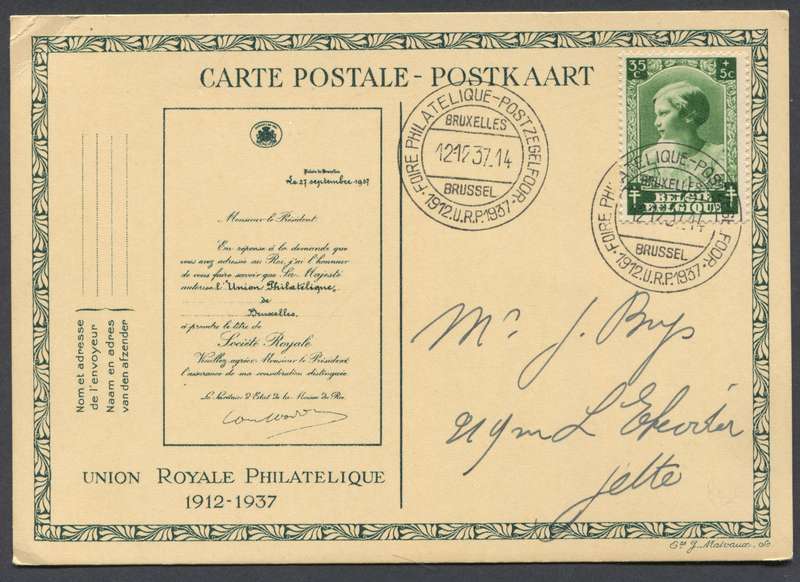 CARTE POSTALE - POSTKAART
Palais de Bruxelles
Le 27 septembre 1937
Monsieur le Président
En réponse à la demande que
vous avez adressée au Roi, j'ai l'honneur
de vous faire savoir que Sa Majesté
autorise l'Union Philatélique,
de
Bruxelles,
à prendre le titre de
Société Royale
Veuillez agréer Monsieur le Président
l'assurance de ma considération distinguée
Le Secrétaire d'Etat de la Maison du Roi
Nom et adresse
de l'envoyeur
Naam en adres
van den afzender
UNION ROYALE PHILATELIQUE
1912-1937
FOIRE PHILATELIQUE-POSTZEGELFOOR
BRUXELLES
12 12 37. 14
BRUSSEL
1912.U.R.P.1937
35 c + 5 c
BELGIE
BELGIQUE
FOIRE PHILATELIQUE-POSTZEGELFOOR
BRUXELLES
12 12 37. 14
BRUSSEL
1912.U.R.P.1937
Mr J. Buys
Jette
Ets J. Malvaux